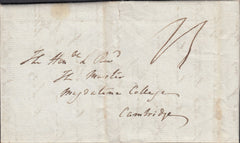 The Hon.ble & Revd
The Master
Magdalene College
Cambridge